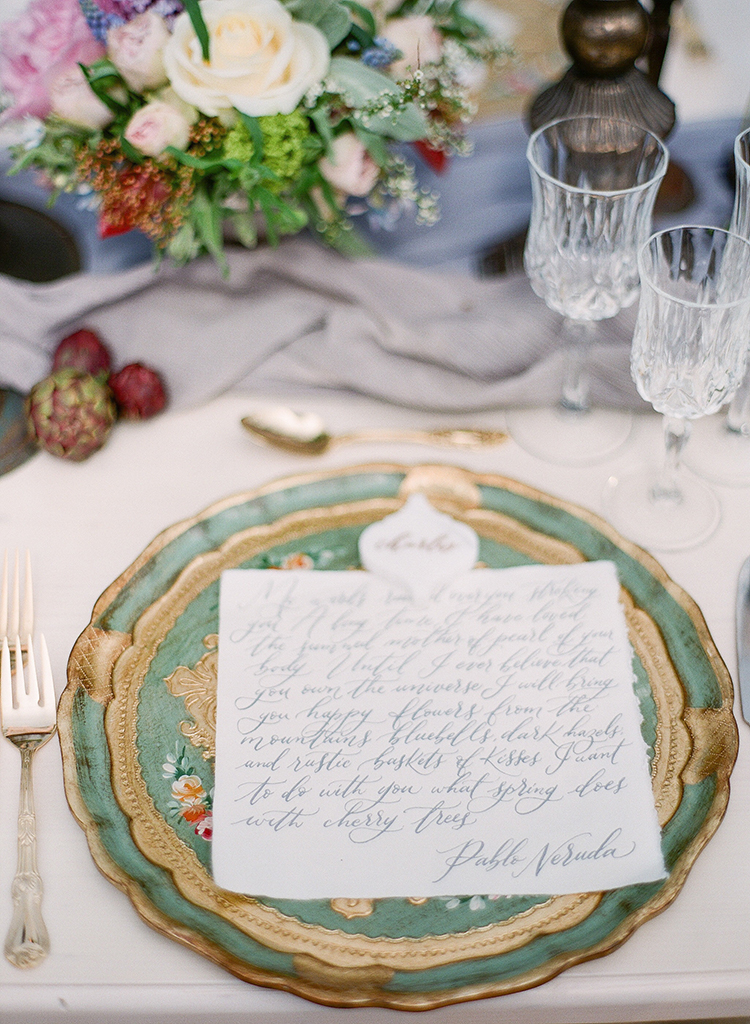 charles
My words rain over you stroking
you A long time I have loved
the sunned mother of pearl of your
body Until I even believe that
you own the universe I will bring
you happy flowers from the
mountains bluebells, dark hazels,
and rustic baskets of kisses I want
to do with you what spring does
with cherry trees
Pablo Neruda